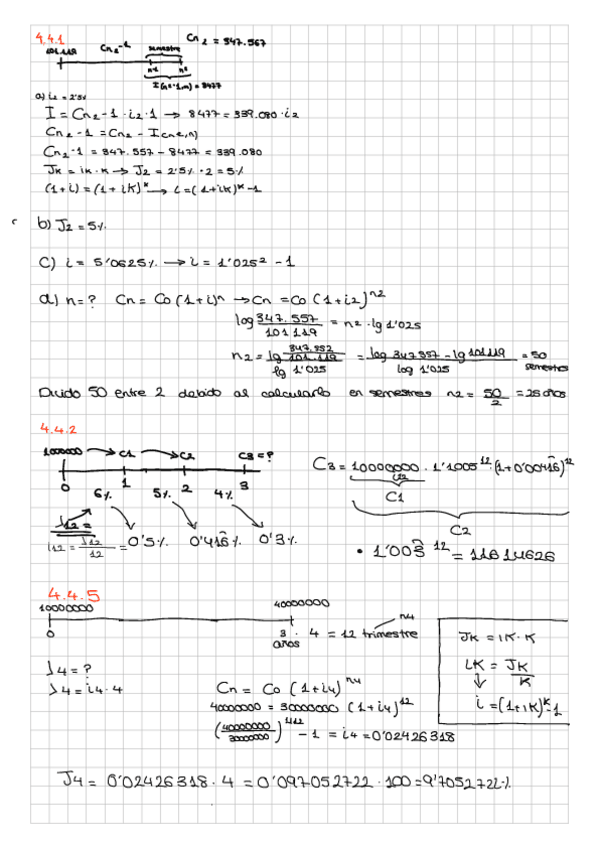 4.4.1
Cn₂ = 347.567
101.119 Cn₂-1 semestre
n-1 n²
I(n²-1,n) = 8477
a) i₂ = 2'5%
I = Cn₂-1 · i₂ · 1 → 8477 = 339.080 · i₂
Cn₂-1 = Cn₂ - I(n-1,n)
Cn₂-1 = 347.557 - 8477 = 339.080
Jk = ik · k → J₂ = 2'5% · 2 = 5%
(1+i) = (1+ik)ᵏ → i = (1+ik)ᵏ-1
b) J₂ = 5%
c) i = 5'0625% → i = 1'025² - 1
d) n = ? Cn = Co (1+i)ⁿ → Cn = Co (1+i₂)ⁿ²
log 347.557/101119 = n₂ · lg 1'025
n₂ = lg 347.557/101.119 / lg 1'025 = log 347557 - lg 101119 / log 1'025 = 50 semestres
Divido 50 entre 2 debido al calcularlo en semestres n₂ = 50/2 = 25 años
4.4.2
100000 → C1 → C2 C3 = ?
0 1 2 3
6% 5% 4%
J12 =
i12 = J12/12 = 0'5% 0'416̂% 0'3%
C3 = 10000000 · 1'1005¹² · (1+0'00416̂)¹²
C1
C2
· 1'003̂ ¹² = 11614626
4.4.5
10000000 40000000
0 3 años · 4 = 12 trimestre n4
J4 = ?
J4 = i4 · 4
Cn = Co (1+i4)ⁿ⁴
40000000 = 30000000 (1+i4)¹²
(40000000/30000000)^1/12 - 1 = i4 = 0'02426318
Jk = ik · k
ik = Jk/k
i = (1+ik)ᵏ-1
J4 = 0'02426318 · 4 = 0'097052722 · 100 = 9'7052722%